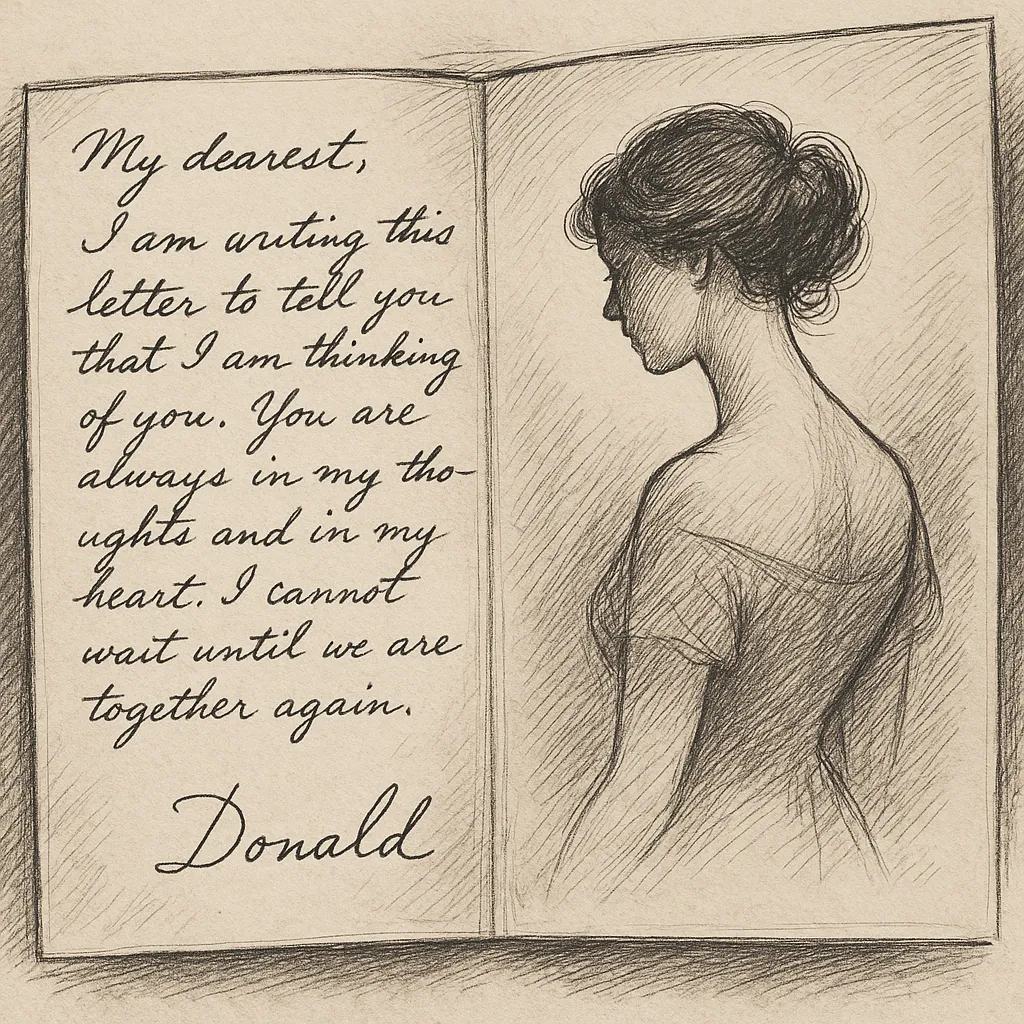 My dearest,
I am writing this
letter to tell you
that I am thinking
of you. You are
always in my tho-
ughts and in my
heart. I cannot
wait until we are
together again.
Donald